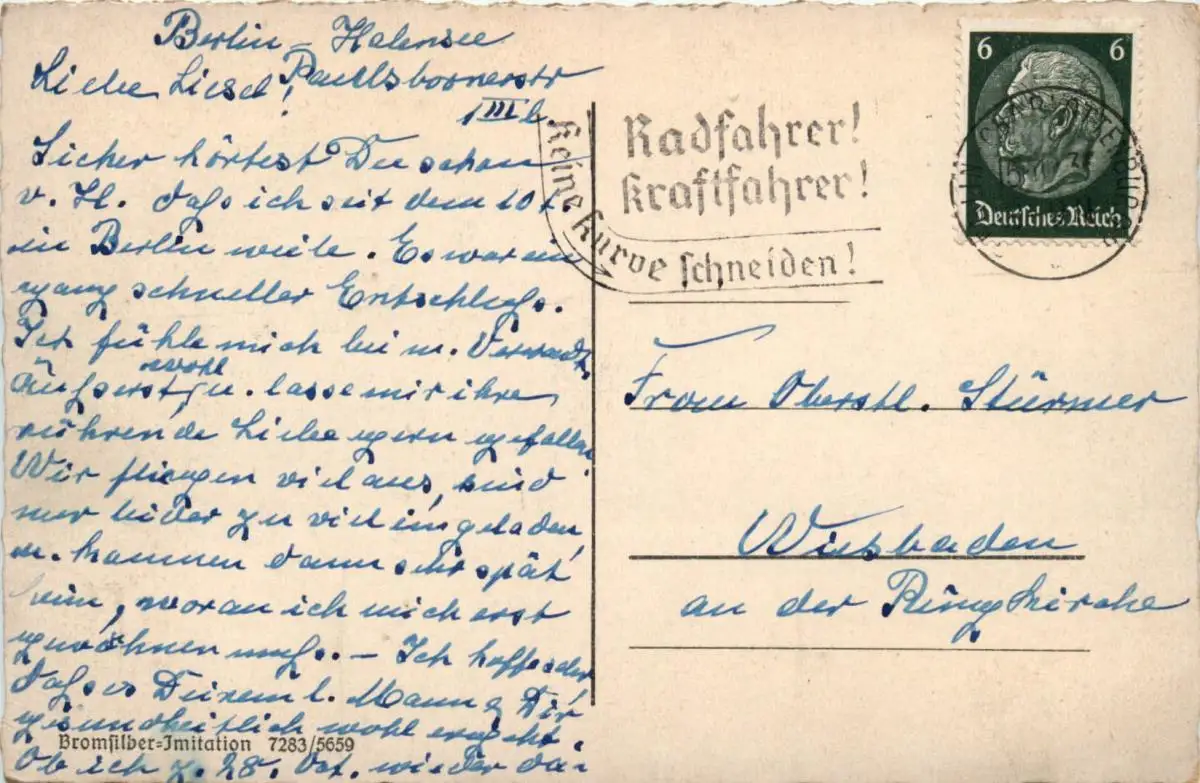 Berlin – Halensee
Liebe Liesel! Paulsbornerstr
1 III b
Sicher hörtest Du schon
v. H. daß ich seit dem 10t.
in Berlin weile. Es war ein
ganz schneller Entschluß.
Ich fühle mich bei m. Verwandt.
äußerst wohl u. lasse mir ihre
rührende Liebe gern gefallen
Wir fliegen viel aus, sind
nur leider zu viel eingeladen
u. kommen dann sehr spät
heim, woran ich mich erst
gewöhnen muß. – Ich hoffe sehr
daß es Deinem l. Mann & Dir
gesundheitlich wohl ergeht.
Ob ich z. 28. Oct. wieder da-
Bromsilber=Imitation 7283/5659
Radfahrer!
Kraftfahrer!
Keine Kurve schneiden!
6 6
Deutsches Reich
CHARLOTTENBURG
Frau Oberstl. Stürmer
Wiesbaden
an der Ringkirche